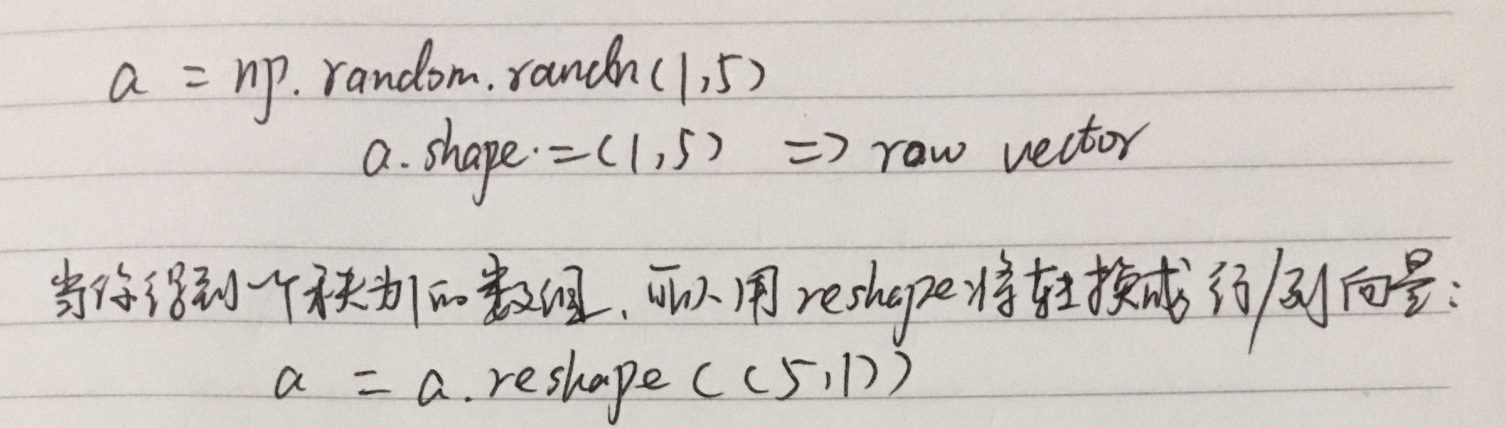 a = np.random.randn(1,5)
a.shape = (1,5) => raw vector
当你得到一个秩为1的数组，可以用reshape将转换成行/列向量：
a = a.reshape((5,1))